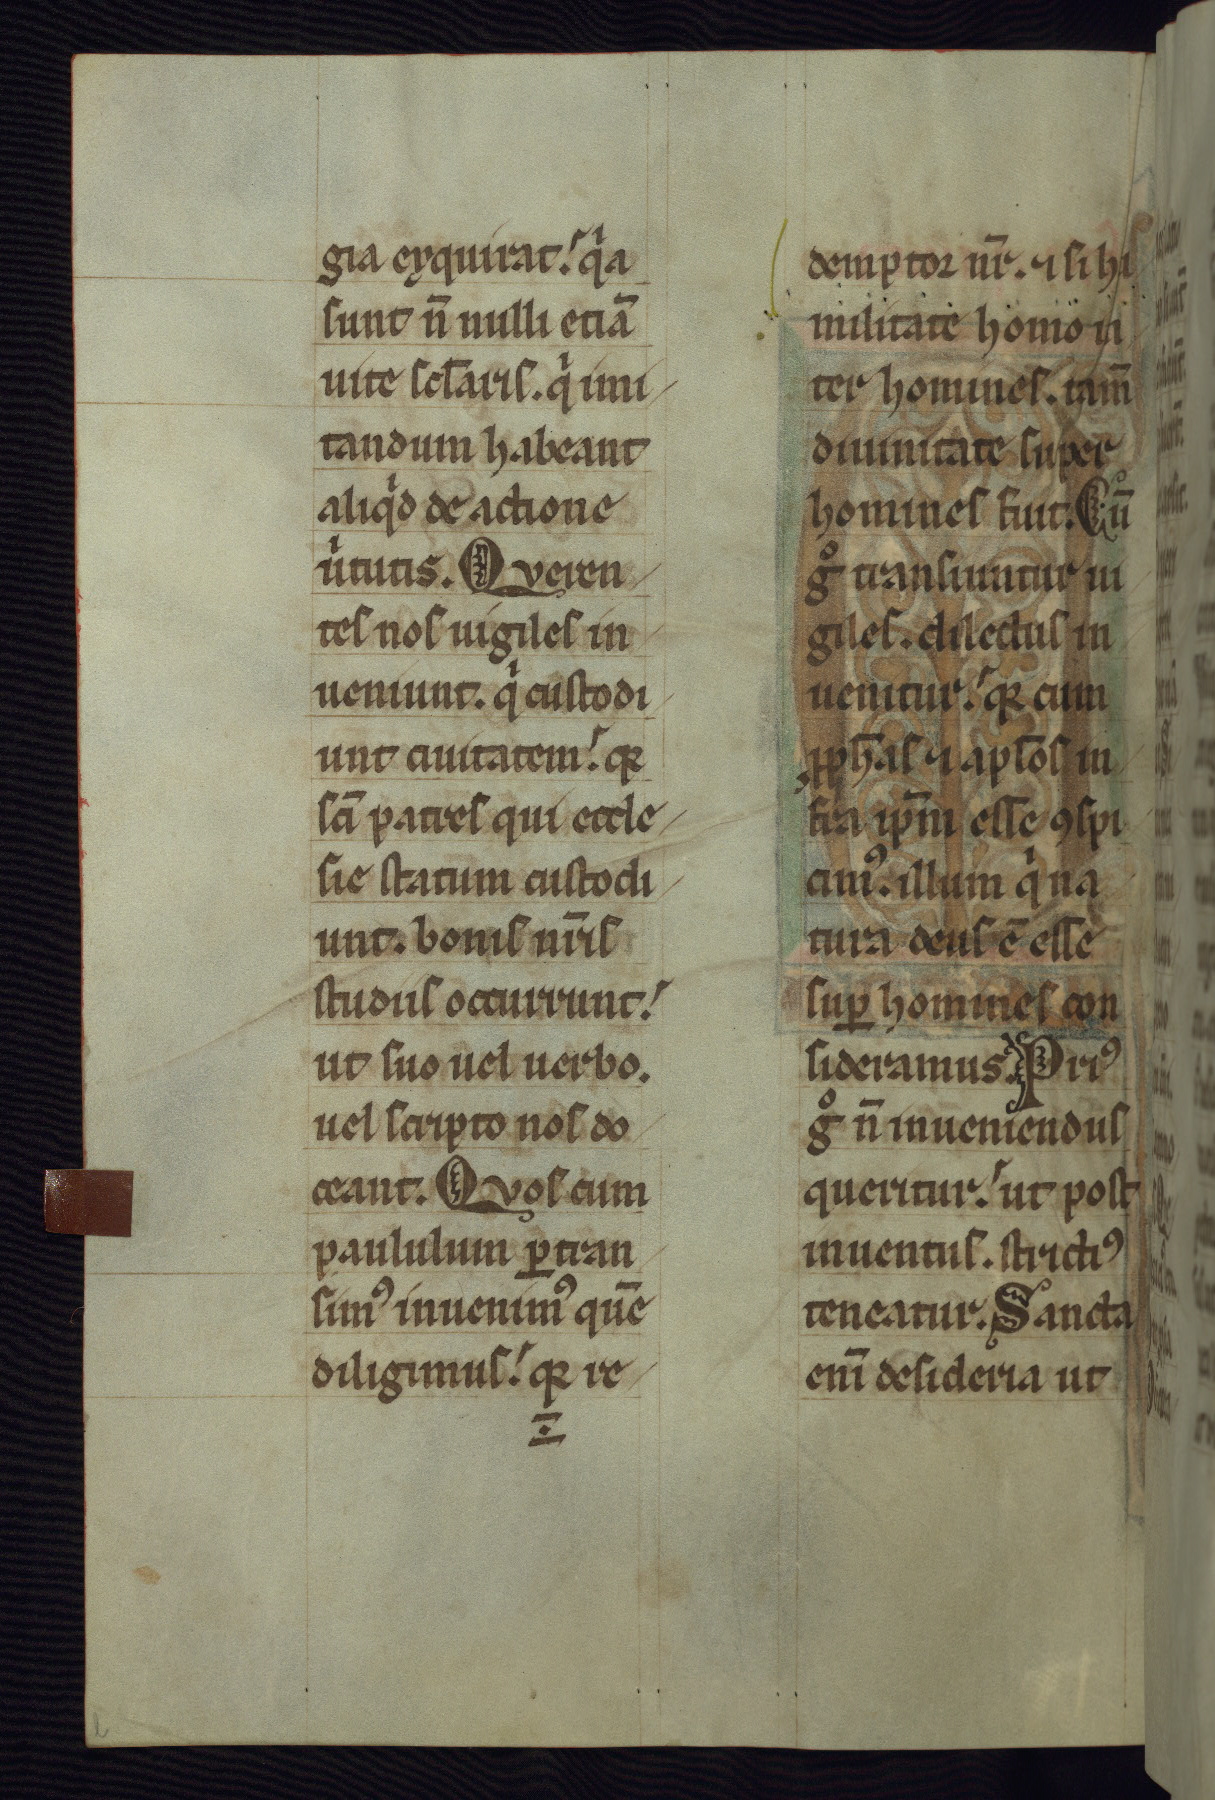 gia exquirat. q̇a
sunt n̄ nulli etiā
uite sclaris. q̇ imi
tandum habeant
aliq̇d de actione
u̇tutis. Queren
tes nos uigiles in
ueniunt. q̇ custodi
unt ciuitatem. qꝛ
sc̄i patres qui eccle
sie statum custodi
unt. bonis nr̄is
studiis occurrunt.
ut suo uel uerbo.
uel scripto nos do
ceant. Quos cum
paululum ꝑtran
simꝰ inuenimꝰ quē
diligimus. qꝛ re
demptor nr̄. ⁊ si hu
militate homo in
ter homines. tam̄
diuinitate super
homines fuit. Cū
gͦ transeuntur ui
giles. dilectus in
uenitur. qꝛ cum
ꝓph̄as ⁊ aplōs in
fra ip̄m esse ꝯspi
cimꝰ. illum q̇ na
tura deus ē esse
suꝑ homines con
sideramus. Priꝰ
gͦ n̄ inueniendus
queritur. ut post
inuentus. strictiꝰ
teneatur. Sancta
eni̅ desideria ut